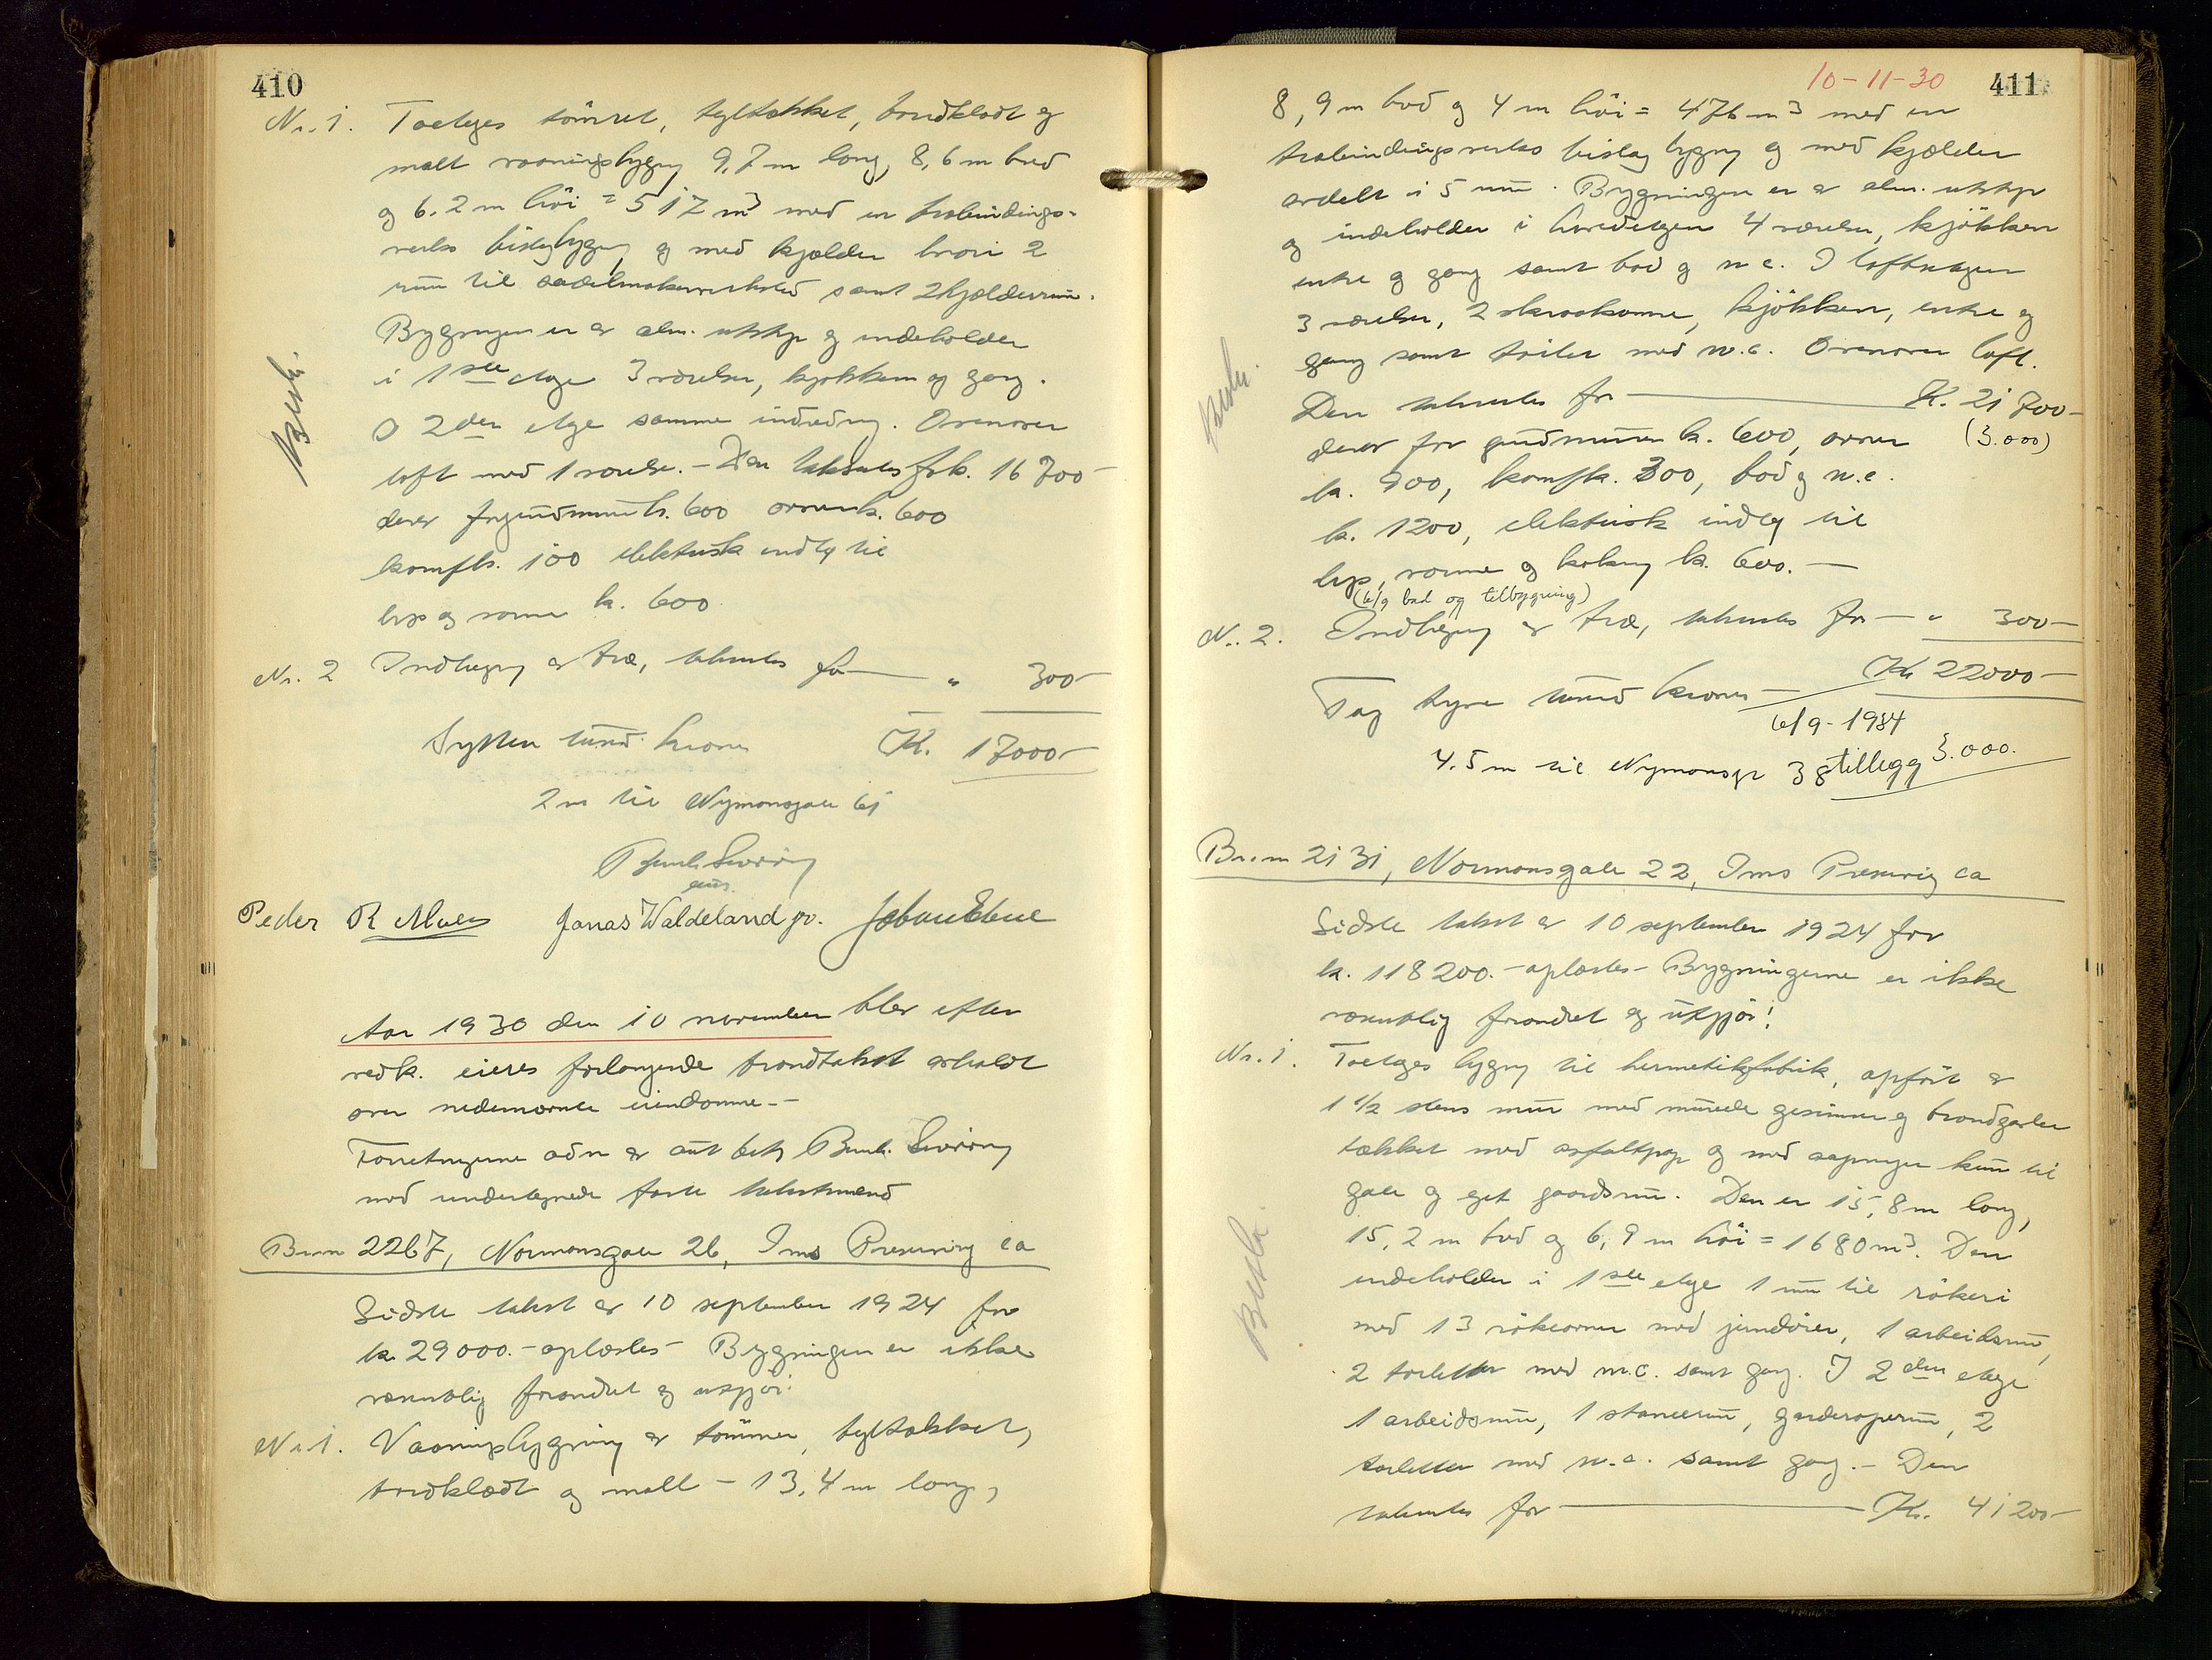 410
Nr. 1. Toetages tömret, tegltækket, bordklædt og
malt vaaningsbygng 9,7 m lang, 8,6 m bred
og 6.2 m höi = 517 m³ med en trebindings-
verks bislagbygng og med kjælder hvori 2
rum til sadelmakerverksted samt 2 kjælderrum.
Bygningen er av alm. utstyr og indeholder
i 1ste etage 3 værelser, kjøkken og gang.
I 2den etage samme indredng. Ovenover
loft med 1 værelse. - Den takseres for k. 16700-
derav for grundmur k. 600 ovner k. 600
komf k. 100 elektrisk indlæg til
lys og varme k. 600
Besk.
Nr. 2 Indhegng av træ, takseres for — " 300-
Sytten tusind kroner K. 17000-
2 m til Nymansgate 61
Bernh. Sværing
Peder R Moen Jonas Waldeland jr.
Aar 1930 den 10 november blev efter
vedk. eieres forlangende brandtakst avholdt
over nedennævnte eiendomme. -
Forretningerne adm av Bernh. Sværing
med undertegnede faste takstmænd
Br.nr 2267, Normansgate 26, Ims Preserving Co
Sidste takst er 10 september 1924 for
k. 29000. - oplæstes - Bygningen er ikke
væsentlig forandret og utgjør:
Nr. 1. Vaaningsbygning av tømmer, tegltækket,
bordklædt og malt - 13,4 m lang,
10-11-30 411
8,9 m bred og 4 m höi = 476 m³ med en
trebindingsverks bislag bygng og med kjælder
avdelt i 5 rum. Bygningen er av alm. utstyr
og indeholder i hovedetagen 4 værelser, kjøkken
entre og gang samt bad og w.c. I loftetagen
3 værelser, 2 skraakamre, kjøkken, entre og
gang samt toilet med w.c. Ovenover loft.
Den takseres for — K. 21700-
derav for grundmuren k. 600, ovner (3.000)
k. 900, komf k. 300, bad og w.c.
k. 1200, elektrisk indlæg til
lys, varme og kokng k. 600. —
(6/9 bad og tilbygning)
Besk.
Nr. 2. Indhegng av træ, takseres for — " 300-
Kr 22000-
To og tyve tusind kroner —
6/9-1934
4.5 m til Nymansgt 38 tillegg 3.000.
Br.nr 2131, Normansgate 22, Ims Preserving Co
Sidste takst er 10 september 1924 for
k. 118200. - oplæstes - Bygningerne er ikke
væsentlig forandret og utgjør:
Nr. 1. Toetages bygng til hermetikfabrik, opført av
1 1/2 stens mur med murede gesimser og brandgavler
tækket med asfaltpap og med aapninger kun til
gate og eget gaardsrum. Den er 15,8 m lang,
15,2 m bred og 6,9 m höi = 1680 m³. Den
indeholder i 1ste etage 1 rum til rökeri
med 13 rökeovner med jerndører, 1 arbeidsrum,
2 toiletter med w.c. samt gang. I 2den etage
1 arbeidsrum, 1 stanserum, garderoperum, 2
toiletter med w.c. samt gang. - Den
takseres for — Kr. 41200-
Besk.